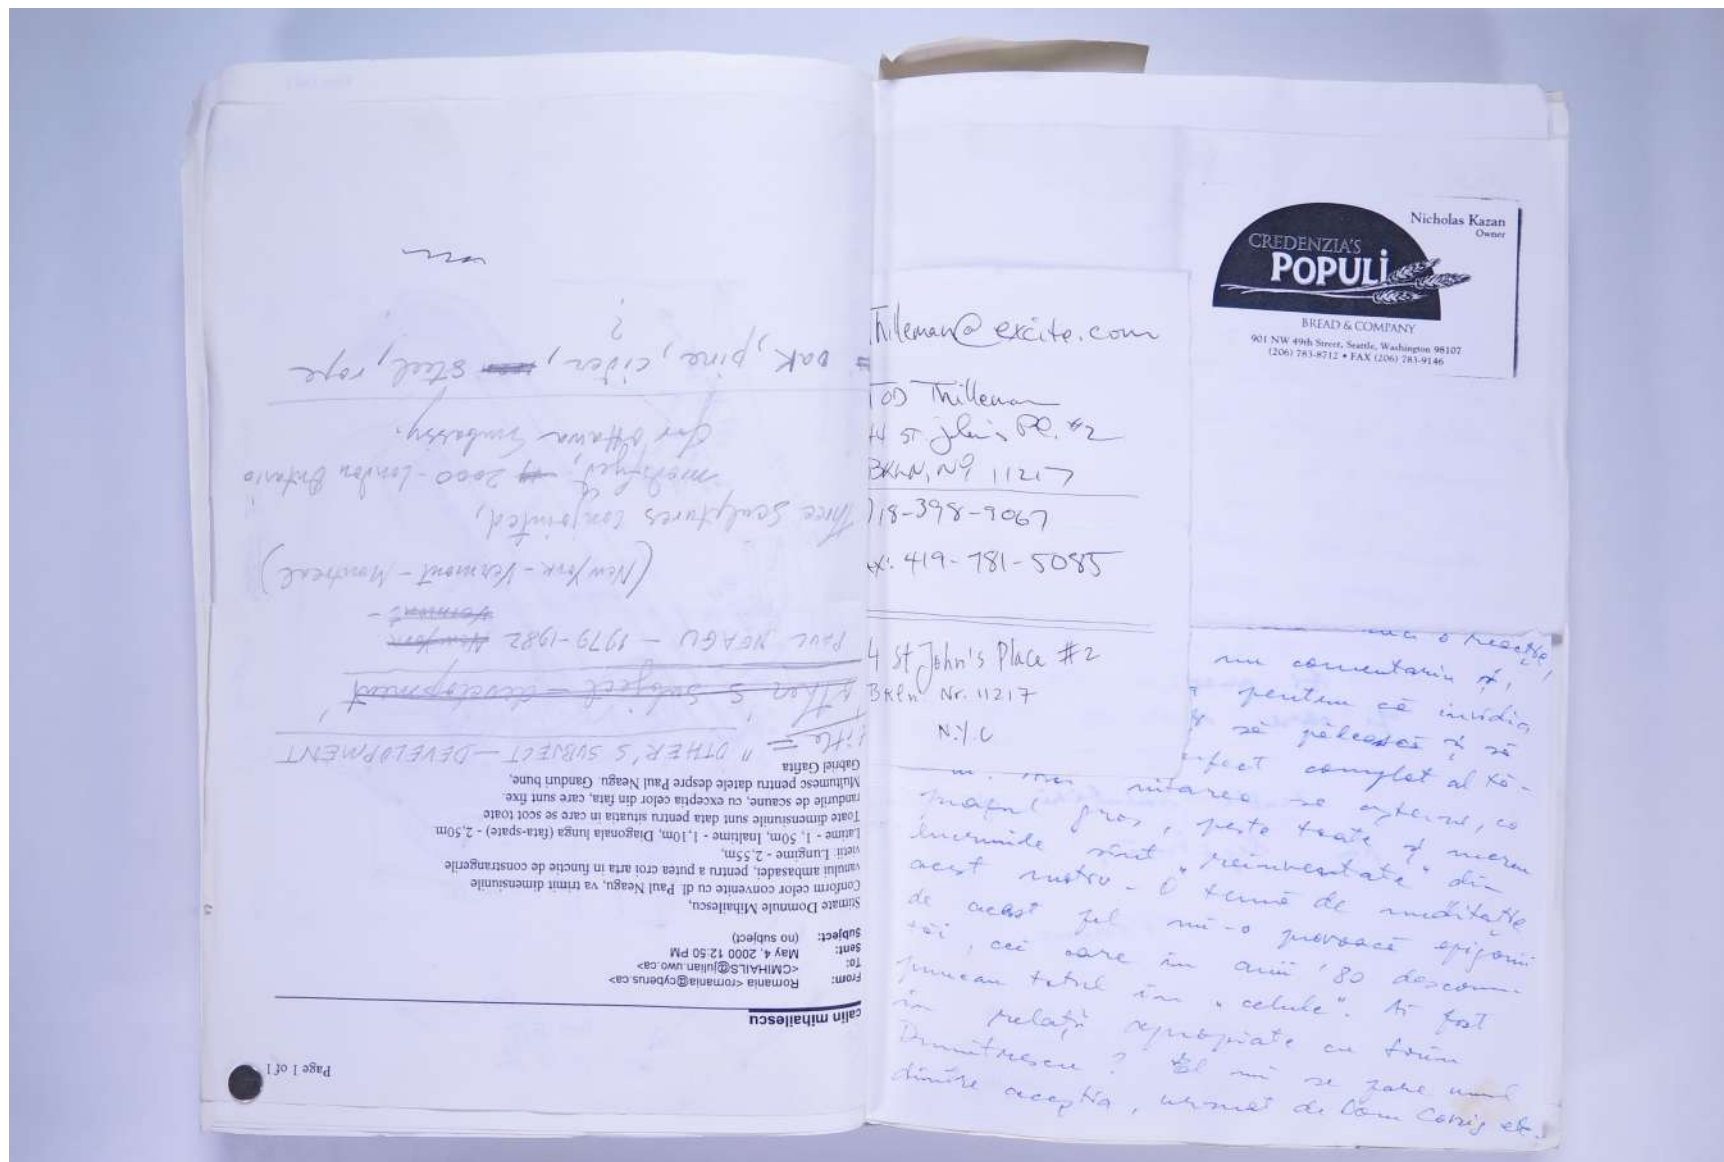 Page 1 of 1
calin mihailescu
From: Romania <romania@cyberus.ca>
To: <CMIHAILS@julian.uwo.ca>
Sent: May 4, 2000 12:50 PM
Subject: (no subject)
Stimate Domnule Mihailescu,
Conform celor convenite cu dl. Paul Neagu, va trimit dimensiunile
vanului ambasadei, pentru a putea croi arta in functie de constrangerile
vietii: Lungime - 2,55m,
Latime - 1, 50m, Inaltime - 1,10m, Diagonala lunga (fata-spate) - 2,50m.
Toate dimensiunile sunt data pentru situatia in care se scot toate
randurile de scaune, cu exceptia celor din fata, care sunt fixe.
Multumesc pentru datele despre Paul Neagu. Ganduri bune,
Gabriel Gafita
title = "OTHER'S SUBJECT – DEVELOPMENT
other's subject – development
PAUL NEAGU – 1979-1982 New York
Vermont –
(New York - Vermont - Montreal)
Three Sculptures Conjointed,
modifyed, 2000 - London Ontario
for Ottawa Embassy.
= oak, pine, cider, steel, rope
?
Thilleman@excite.com
TOD Thilleman
44 St John's Pl. #2
BKLN, NY 11217
718-398-9067
ax: 419-781-5085
4 St John's Place #2
BKln Nr. 11217
N.Y.C
Nicholas Kazan
Owner
CREDENZIA'S
POPULI
BREAD & COMPANY
901 NW 49th Street, Seattle, Washington 98107
(206) 783-8712 • FAX (206) 783-9146
o reacție,
un comentariu și,
pentru că invidia
să pălească și să
perfect complet al tă-
uitarea se așterne, ca
praful gros, peste toate și mereu
lucrurile sînt "reinventate" din
acest motiv. O temă de meditație
de acest fel mi-o provoacă epigonii
tăi, cei care în anii '80 descom-
puneau totul în "celule". Ai fost
în relații apropiate cu Sorin
Dumitrescu? El mi se pare unul
dintre aceștia, urmat de